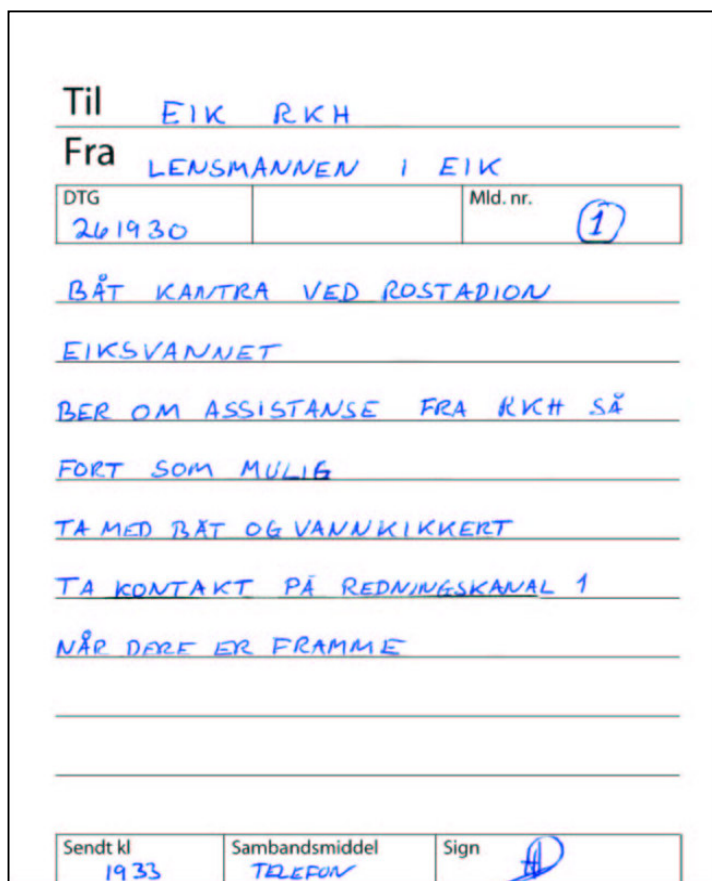 Til EIK RKH
Fra LENSMANNEN I EIK
DTG Mld. nr.
261930 1
BÅT KANTRA VED ROSTADION
EIKSVANNET
BER OM ASSISTANSE FRA RKH SÅ
FORT SOM MULIG
TA MED BÅT OG VANNKIKKERT
TA KONTAKT PÅ REDNINGSKANAL 1
NÅR DERE ER FRAMME
Sendt kl Sambandsmiddel Sign
1933 TELEFON